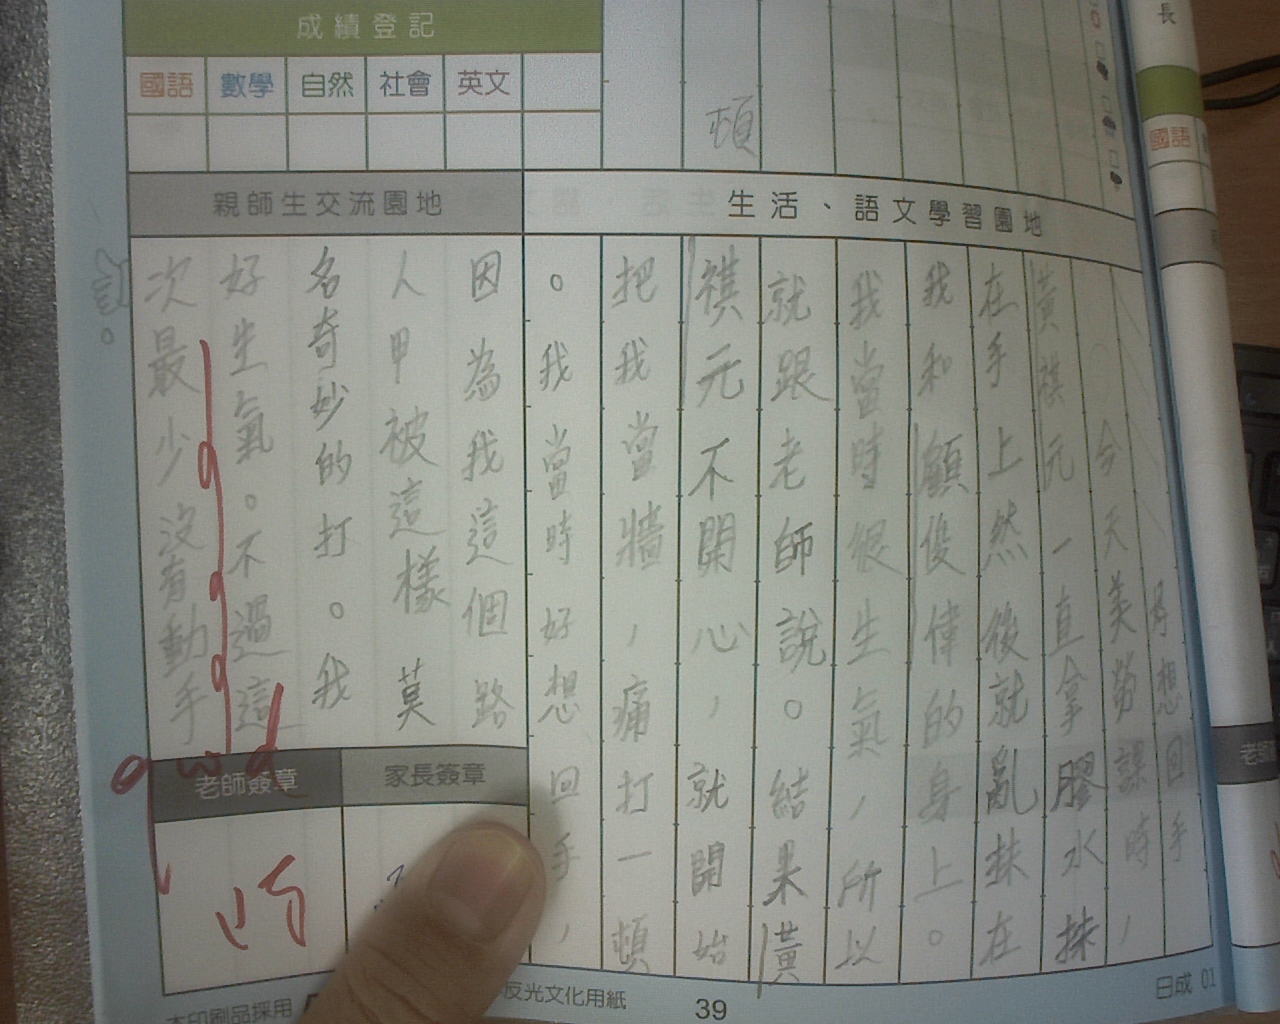 成績登記
國語 數學 自然 社會 英文
頓
親師生交流園地
生活、語文學習園地
好想回手
今天美勞課時，
黃祺元一直拿膠水抹
在手上然後就亂抹在
我和顧俊偉的身上。
我當時很生氣，所以
就跟老師說。結果黃
祺元不開心，就開始
把我當牆，痛打一頓
。我當時好想回手，
因為我這個路
人甲被這樣莫
名奇妙的打。我
好生氣。不過這
次最少沒有動手
。
老師簽章
家長簽章
反光文化用紙
39
日成 01
長
國語